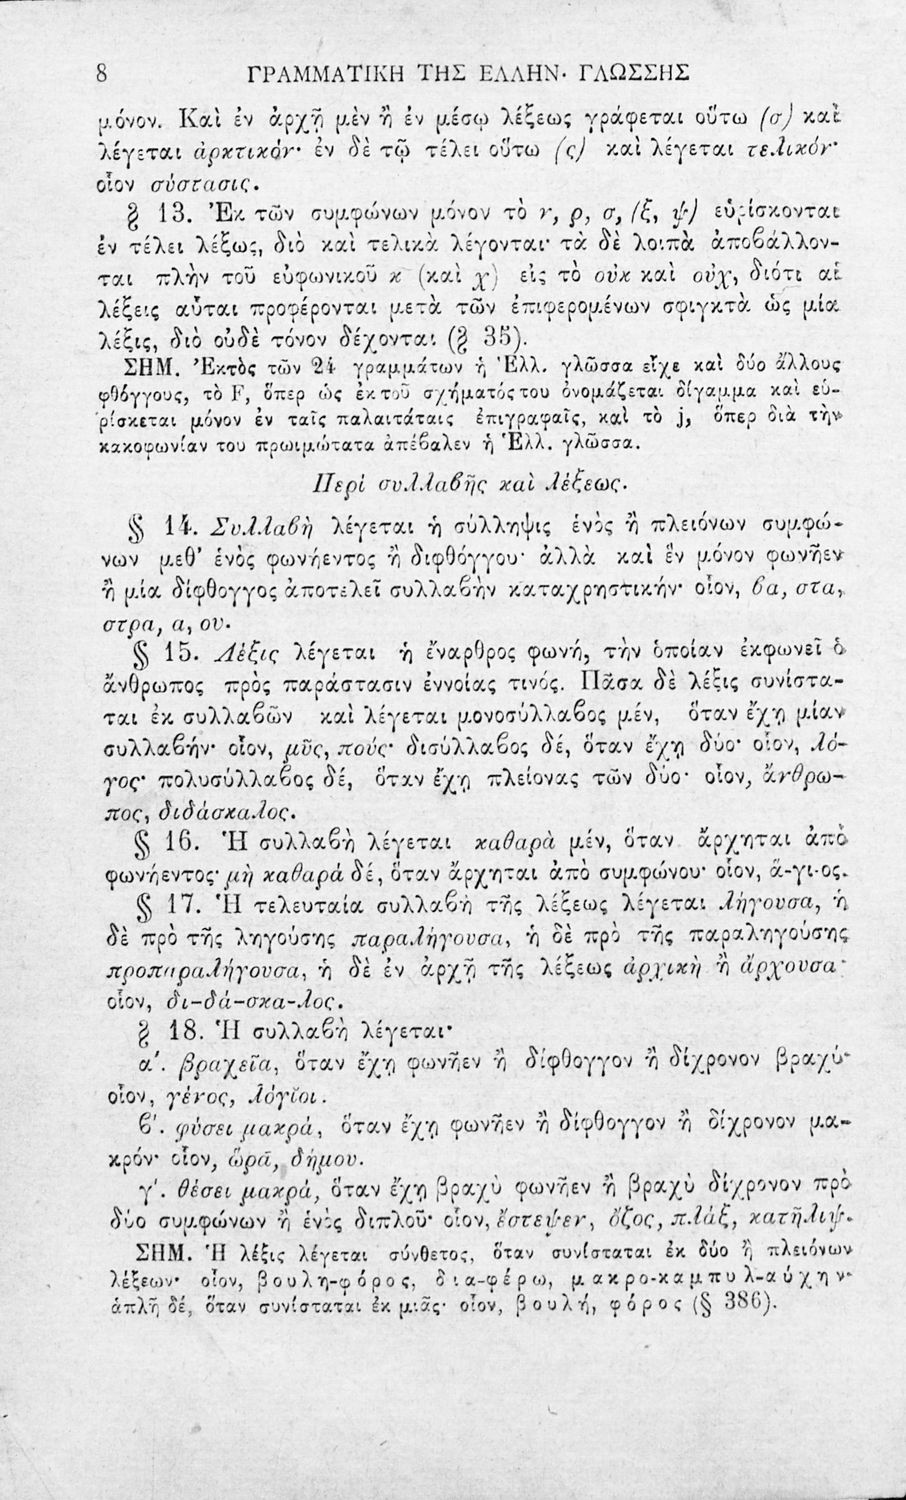 8 ΓΡΑΜΜΑΤΙΚΗ ΤΗΣ ΕΛΛΗΝ· ΓΛΩΣΣΗΣ
μόνον. Καὶ ἐν ἀρχῇ μὲν ἢ ἐν μέσῳ λέξεως γράφεται οὕτω (σ) καὶ
λέγεται ἀρκτικόν· ἐν δὲ τῷ τέλει οὕτω (ς) καὶ λέγεται τελικόν·
οἷον σύστασις.
§ 13. Ἐκ τῶν συμφώνων μόνον τὸ ν, ρ, σ, (ξ, ψ) εὑρίσκονται
ἐν τέλει λέξως, διὸ καὶ τελικὰ λέγονται· τὰ δὲ λοιπὰ ἀποβάλλον-
ται πλὴν τοῦ εὐφωνικοῦ κ (καὶ χ) εἰς τὸ οὐκ καὶ οὐχ, διότι αἱ
λέξεις αὗται προφέρονται μετὰ τῶν ἐπιφερομένων σφιγκτὰ ὡς μία
λέξις, διὸ οὐδὲ τόνον δέχονται (§ 35).
ΣΗΜ. Ἐκτὸς τῶν 24 γραμμάτων ἡ Ἑλλ. γλῶσσα εἶχε καὶ δύο ἄλλους
φθόγγους, τὸ F, ὅπερ ὡς ἐκ τοῦ σχήματός του ὀνομάζεται δίγαμμα καὶ εὑ-
ρίσκεται μόνον ἐν ταῖς παλαιτάταις ἐπιγραφαῖς, καὶ τὸ j, ὅπερ διὰ τὴν
κακοφωνίαν του πρωιμώτατα ἀπέβαλεν ἡ Ἑλλ. γλῶσσα.
Περὶ συλλαβῆς καὶ λέξεως.
§ 14. Συλλαβὴ λέγεται ἡ σύλληψις ἑνὸς ἢ πλειόνων συμφώ-
νων μεθ' ἑνὸς φωνήεντος ἢ διφθόγγου· ἀλλὰ καὶ ἓν μόνον φωνῆεν
ἢ μία δίφθογγος ἀποτελεῖ συλλαβὴν καταχρηστικήν· οἷον, βα, στα,
στρα, α, ου.
§ 15. Λέξις λέγεται ἡ ἔναρθρος φωνή, τὴν ὁποίαν ἐκφωνεῖ ὁ
ἄνθρωπος πρὸς παράστασιν ἐννοίας τινός. Πᾶσα δὲ λέξις συνίστα-
ται ἐκ συλλαβῶν καὶ λέγεται μονοσύλλαβος μέν, ὅταν ἔχῃ μίαν
συλλαβήν· οἷον, μῦς, πούς· δισύλλαβος δέ, ὅταν ἔχῃ δύο· οἷον, λό-
γος· πολυσύλλαβος δέ, ὅταν ἔχῃ πλείονας τῶν δύο· οἷον, ἄνθρω-
πος, διδάσκαλος.
§ 16. Ἡ συλλαβὴ λέγεται καθαρὰ μέν, ὅταν ἄρχηται ἀπὸ
φωνήεντος· μὴ καθαρά δέ, ὅταν ἄρχηται ἀπὸ συμφώνου· οἷον, ἅ-γι-ος.
§ 17. Ἡ τελευταία συλλαβὴ τῆς λέξεως λέγεται λήγουσα, ἡ
δὲ πρὸ τῆς ληγούσης παραλήγουσα, ἡ δὲ πρὸ τῆς παραληγούσης
προπαραλήγουσα, ἡ δὲ ἐν ἀρχῇ τῆς λέξεως ἀρχικὴ ἢ ἄρχουσα·
οἷον, δι-δά-σκα-λος.
§ 18. Ἡ συλλαβὴ λέγεται·
α'. βραχεῖα, ὅταν ἔχῃ φωνῆεν ἢ δίφθογγον ἢ δίχρονον βραχύ·
οἷον, γένος, λόγῐοι.
β'. φύσει μακρά, ὅταν ἔχῃ φωνῆεν ἢ δίφθογγον ἢ δίχρονον μα-
κρόν· οἷον, ὥρᾱ, δήμου.
γ'. θέσει μακρά, ὅταν ἔχῃ βραχὺ φωνῆεν ἢ βραχὺ δίχρονον πρὸ
δύο συμφώνων ἢ ἑνὸς διπλοῦ· οἷον, ἔστεψεν, ὄζος, πλάξ, κατῆλιψ.
ΣΗΜ. Ἡ λέξις λέγεται σύνθετος, ὅταν συνίσταται ἐκ δύο ἢ πλειόνων
λέξεων· οἷον, βουλη-φόρος, δια-φέρω, μακρο-καμπυλ-αύχην·
ἁπλῆ δέ, ὅταν συνίσταται ἐκ μιᾶς· οἷον, βουλή, φόρος (§ 386).